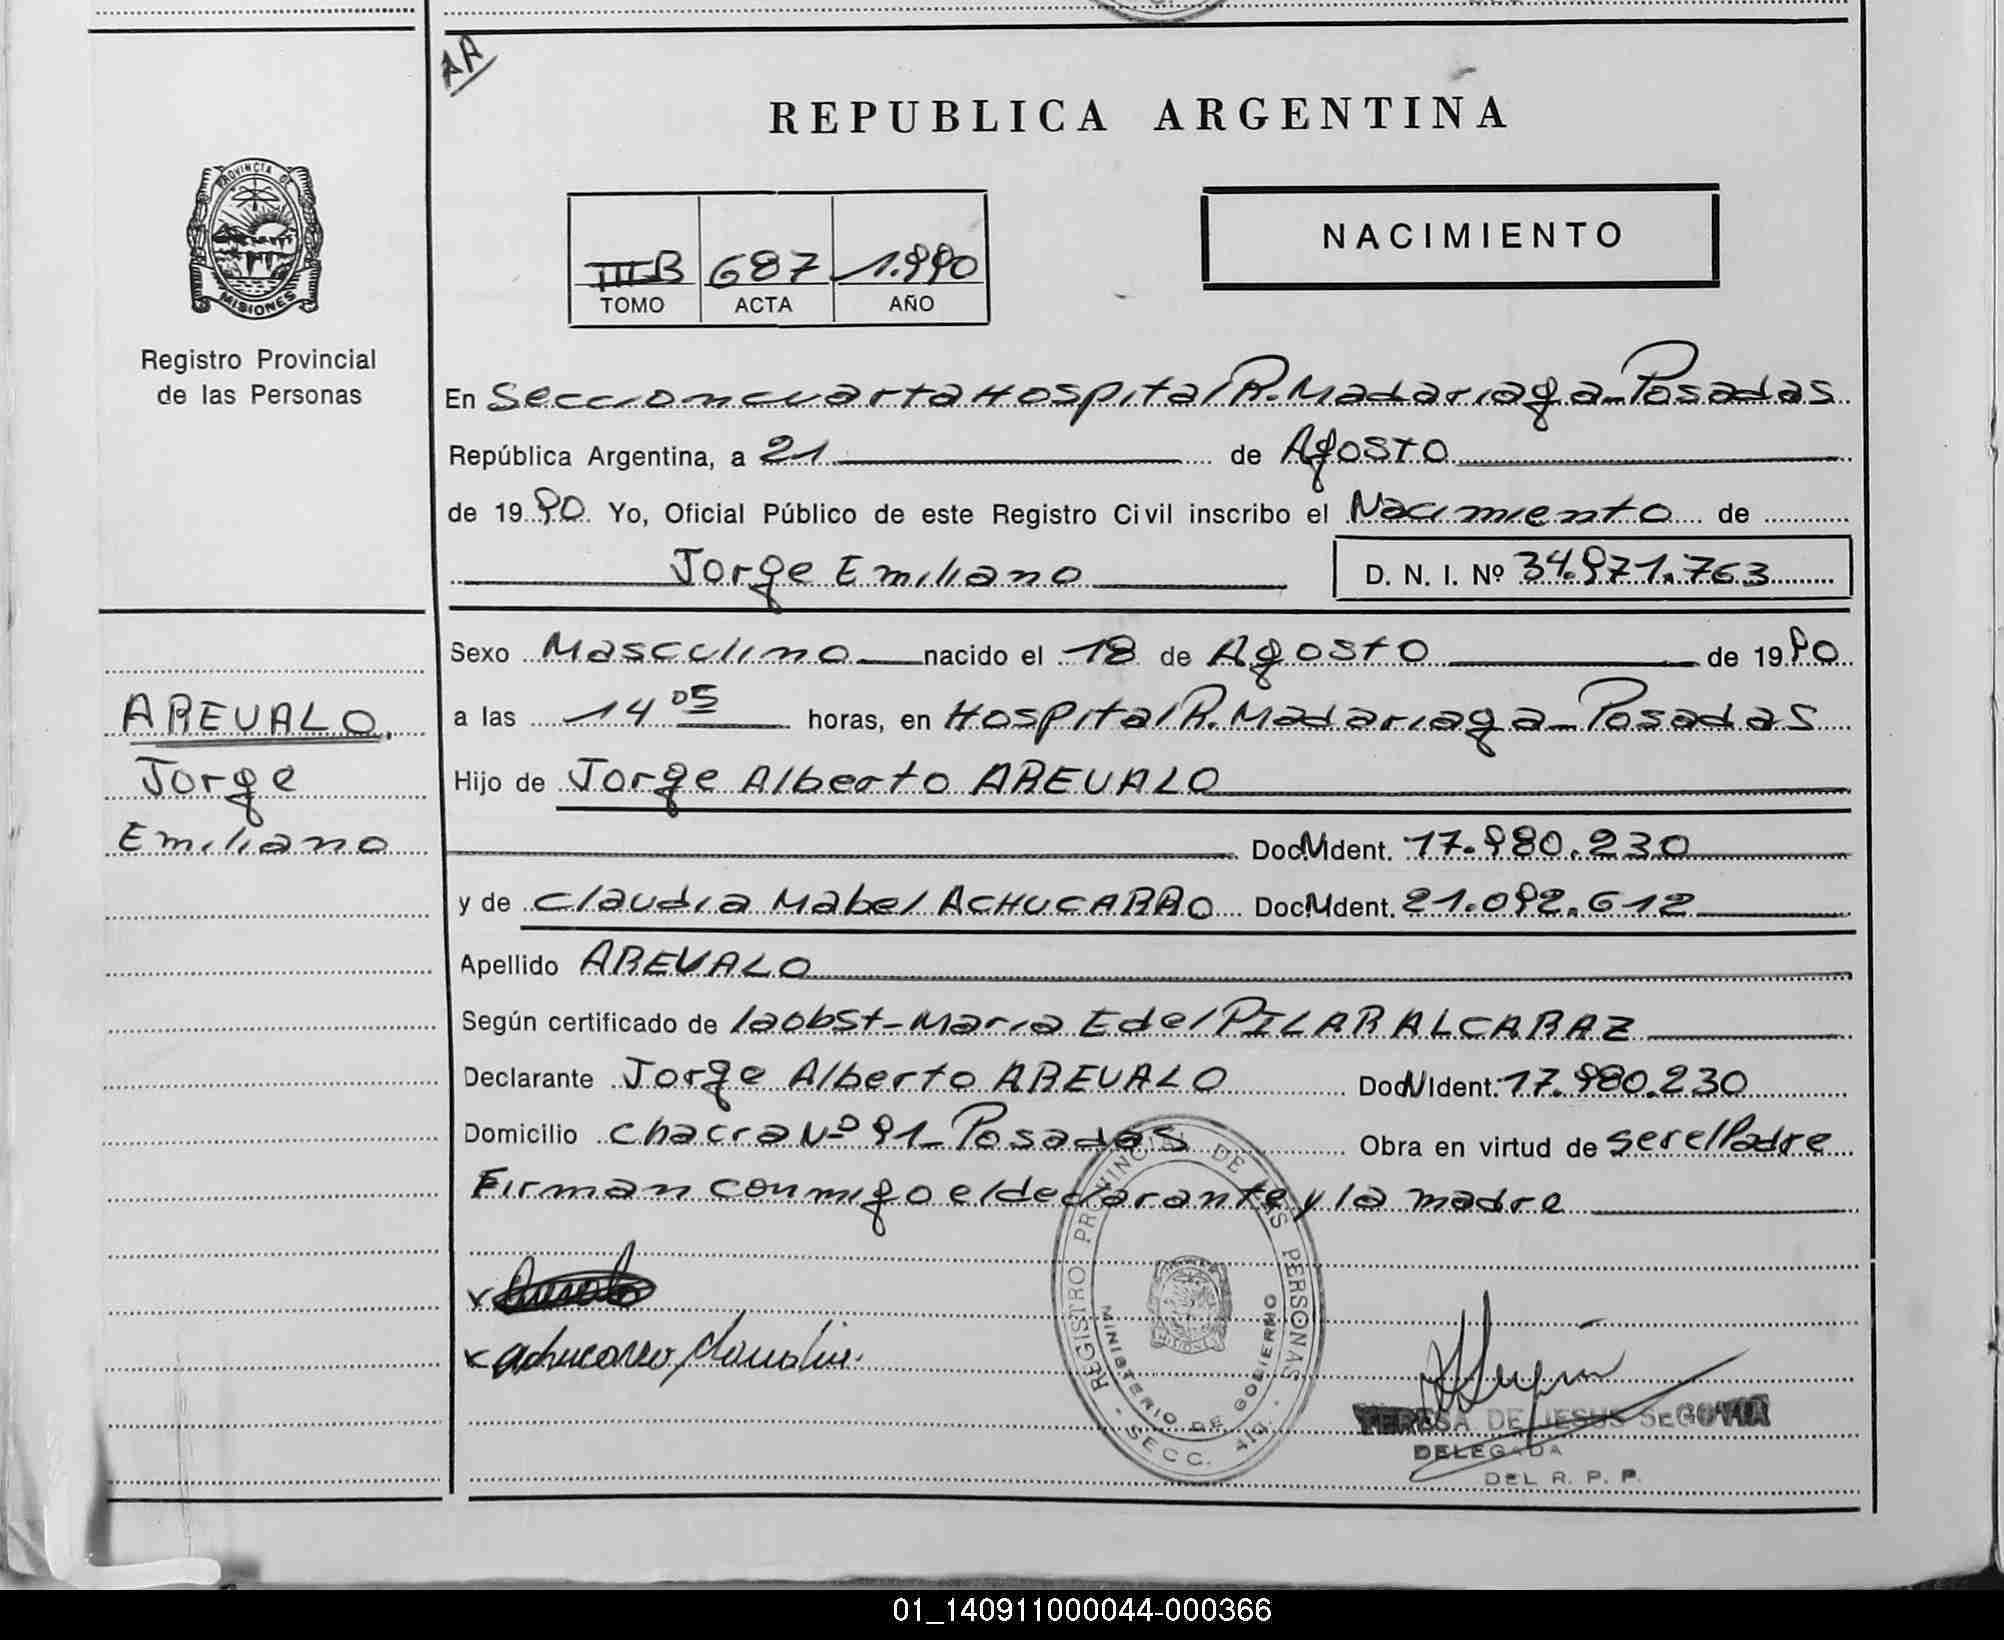 AA
REPUBLICA ARGENTINA
PROVINCIA DE MISIONES
Registro Provincial
de las Personas
NACIMIENTO
III B 687 1.990
TOMO ACTA AÑO
En Seccion cuarta Hospital R. Madariaga - Posadas
República Argentina, a 21 de Agosto
de 1990 Yo, Oficial Público de este Registro Civil inscribo el Nacimiento de
Jorge Emiliano D. N. I. Nº 34.971.763
Sexo Masculino nacido el 18 de Agosto de 1990
a las 14 05 horas, en Hospital R. Madariaga - Posadas
Hijo de Jorge Alberto AREVALO
Doc. Ident. 17.980.230
y de Claudia Mabel ACHUCARRO Doc. Ident. 21.092.612
Apellido AREVALO
Según certificado de la obst - Maria E del PILAR ALCARAZ
Declarante Jorge Alberto AREVALO Doc. Ident. 17.980.230
Domicilio chacra Nº 91 - Posadas Obra en virtud de ser el Padre
Firman conmigo el declarante y la madre
AREVALO,
Jorge
Emiliano
x
x achucarro, claudia.
REGISTRO PROVINCIAL DE LAS PERSONAS
MINISTERIO DE GOBIERNO
- SECC. 4ta. -
TERESA DE JESUS SEGOVIA
DELEGADA
DEL R. P. P.
01_140911000044-000366